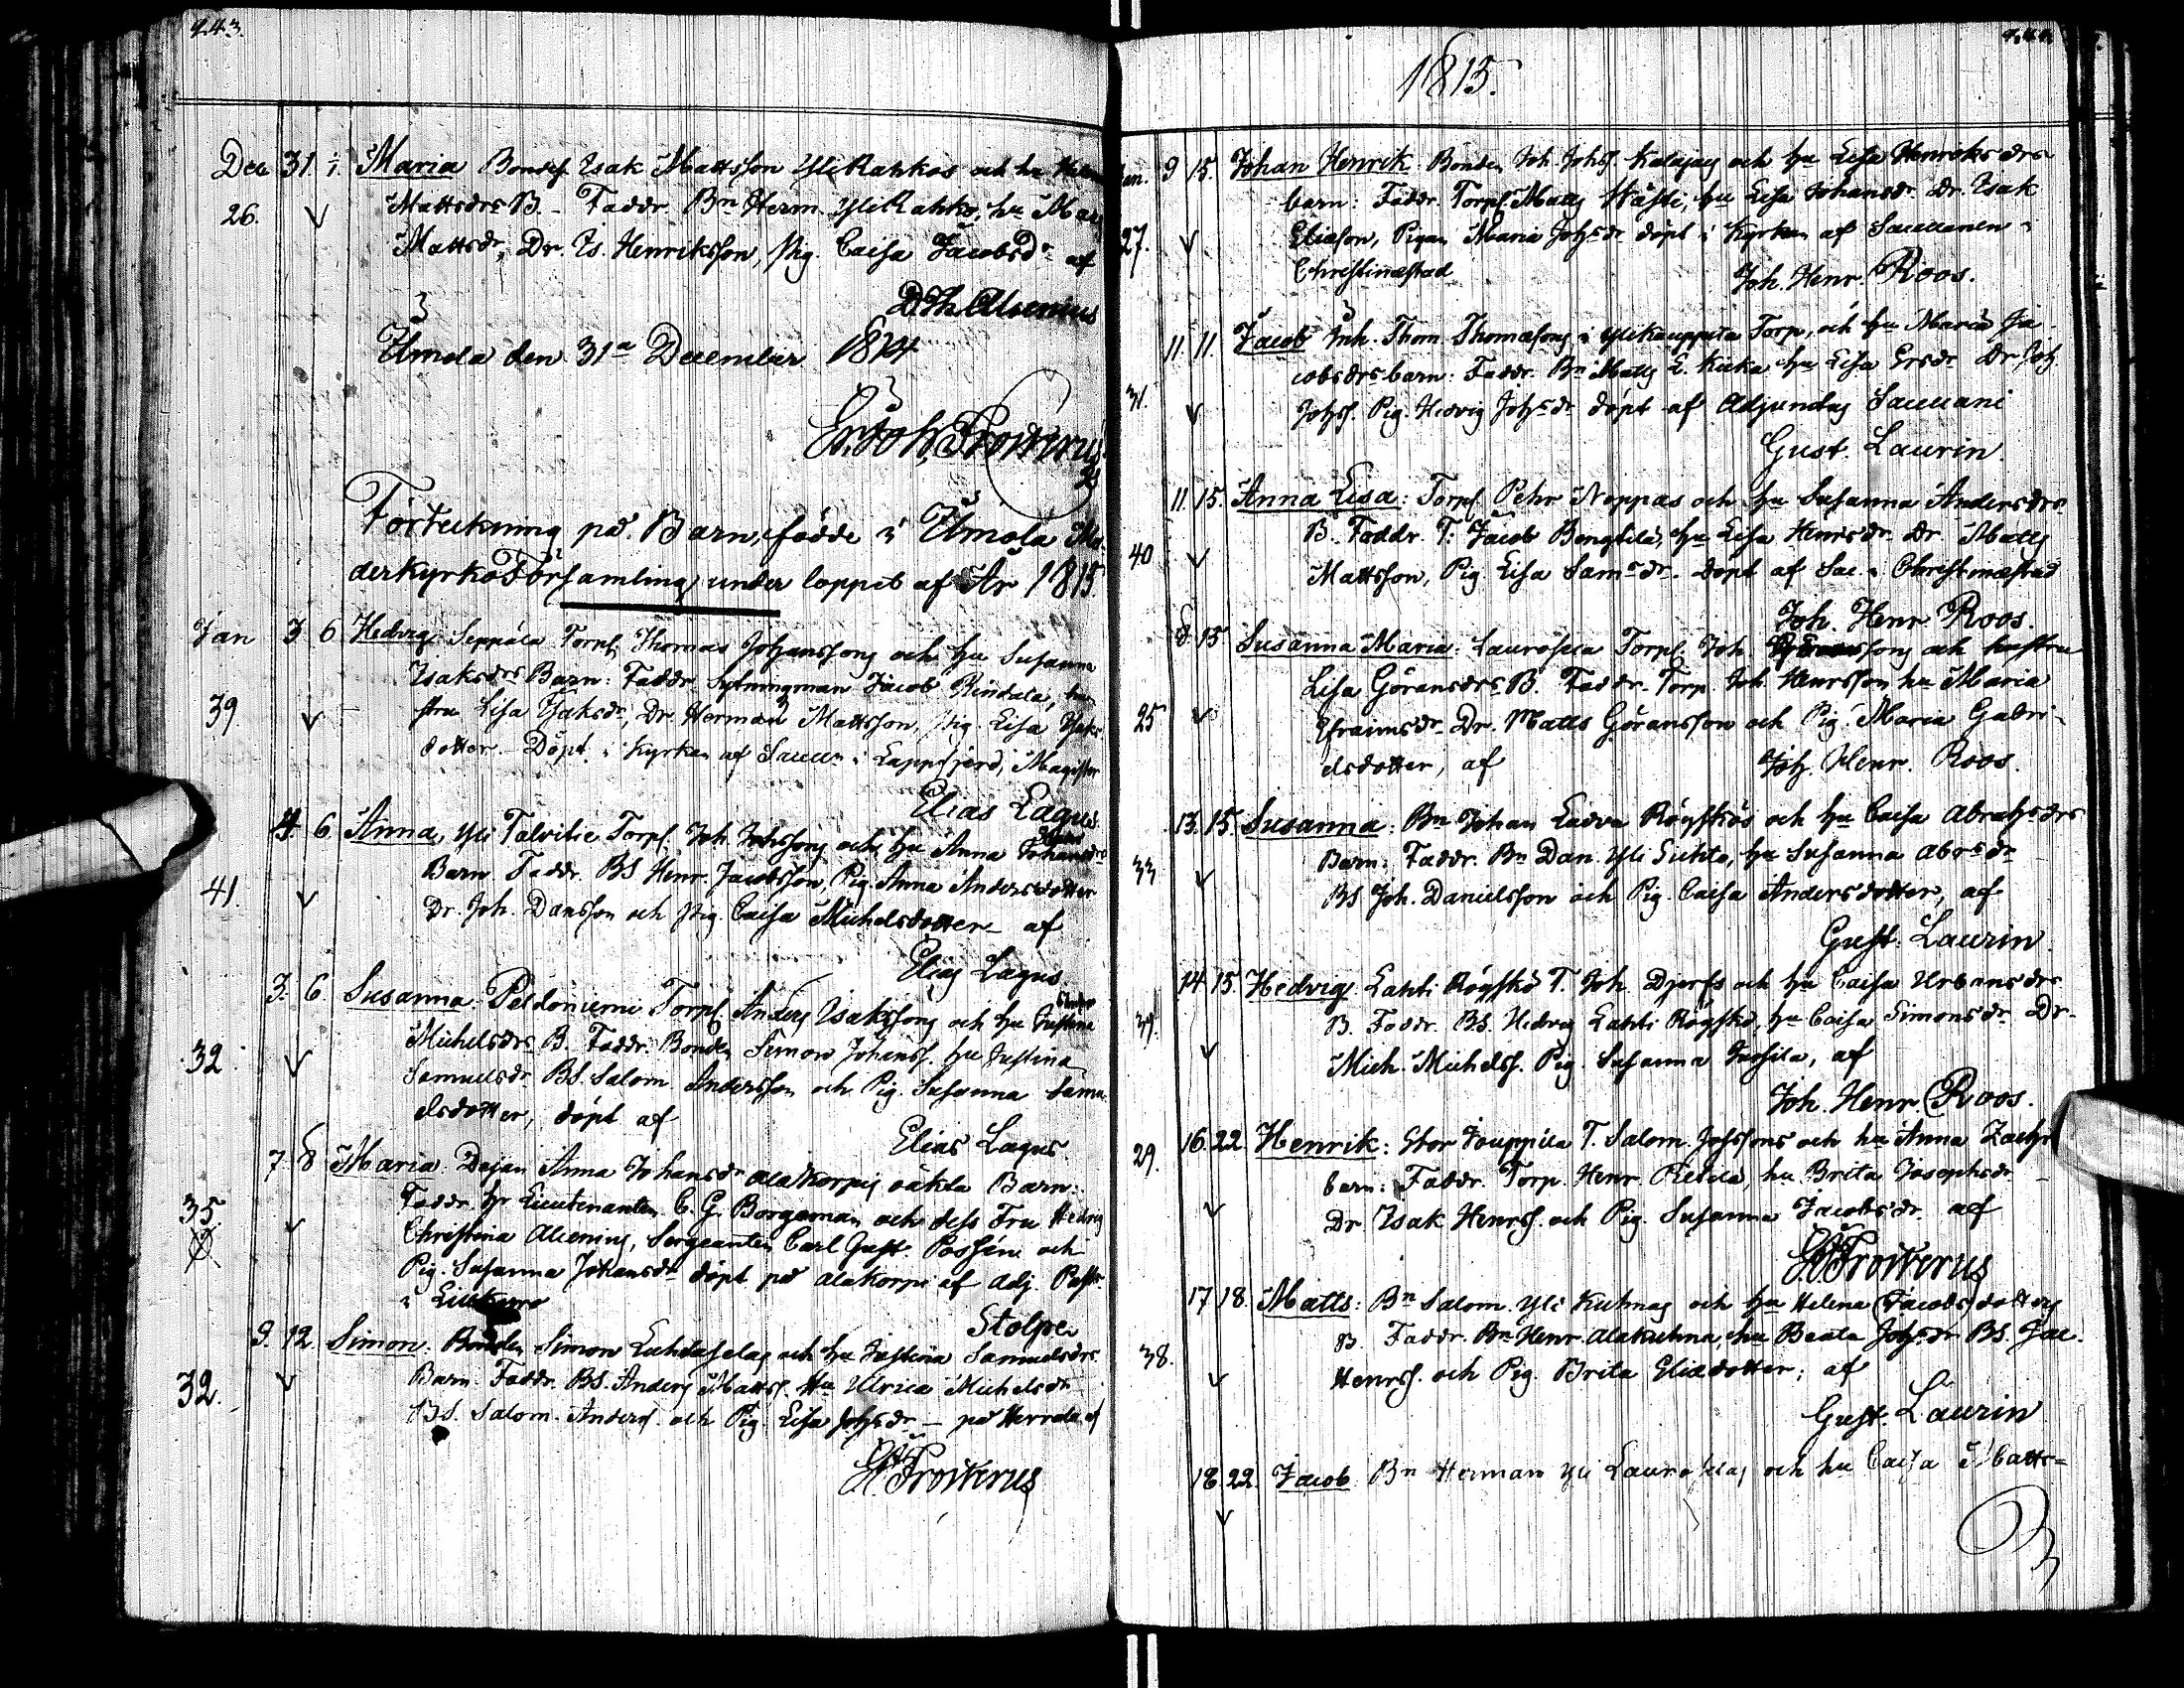 243.
Dec 31. 1/1. Maria Bondes. Isak Mattsson Yli Rahkos och hu
26. Mattsdrs B. - Faddr. Bn Herm. Yli Rahko, hu Mar
Mattsdr, Dr. Is. Henriksson, Pig. Caisa Jacobsdr af
D. Th. Alcenius
Ilmola den 31a December 1814
Er. Joh. Frosterus
Förteckning på Barn, födde i Ilmola Mo-
derkyrkoFörsamling, under loppet af År 1815.
Jan 3 6 Hedvig. Seppälä Torps. Thomas Johanssons och hu Susanna
Isaksdrs Barn: Faddr. Sytningman Jacob Rindala, hu-
39. stru Lisa Isaksdr, Dr. Herman Mattsson, Pig. Lisa Isaks
dotter. Döpt i Kyrkan af Sacell. i Lappfjerd, Magister
Elias Lagus.
4 6 Anna, Yli Talvitie Torps. Joh. Johssons och hu Anna Johansdrs
Barn. Faddr. BS Henr. Jacobsson, Pig. Anna Andersdotter
41. Dr. Joh. Dansson och Pig. Caisa Michelsdotter af
Elias Lagus.
3. 6. Susanna. Peldoniemi Torps. Anders Isakssons och hu
Michelsdrs B. Faddr. Bonden Simon Johanss. hu Justina
32 Samuelsdr BS. Salom. Andersson och Pig. Susanna Samu-
elsdotter, döpt af
Elias Lagus.
7. 8 Maria. Dejan Anna Johansdr Alakorpis oäkta Barn.
35 Faddr. Hr Lieutenanten C. G. Borgeman och dess Fru Hedvig
Christina Alcenius, Sergeanten Carl Gust. Possén och
Pig. Susanna Johansdr döpt på Alakorpi af Adj. Past.
i Lillkyro
Stolpe
9. 12. Simon. Bonden Simon Luhtaselas och hu Justina Samuelsdrs
Barn. Faddr. BS. Anders Matts. hu Ulrica Michelsdr
32. BS. Salom. Anders. och Pig. Lisa Johsdr - på Herrala af
Frosterus
1815.
Jan. 9 15. Johan Henrik. Bonden Joh. Johss. Kalajas och hu Lisa Henriksdrs
barn: Faddr. Torps. Matts Hästi, hu Lisa Johansdr. Dr. Isak
27. Eliasson, Pigan Maria Johsdr döpt i Kyrkan af Sacellanen i
Christinæstad
Joh. Henr. Roos.
11 11. Jacob Inh. Thom. Thomasons i Ylikauppila Torp, och hu Maria Ja-
cobsdrs barn: Faddr. Bn Matts L. Kieka hu Lisa Ersdr Dr Joh.
31. Johss. Pig. Hedvig Johsdr döpt af Adjunctus Sacellani
Gust. Laurin
11. 15. Anna Lisa: Torps. Pehr Noppas och hu Susanna Andersdrs
B. Faddr. T. Jacob Bengtilä, hu Lisa Henrsdr Dr. Matts
40 Mattsson, Pig. Lisa Samsdr. Döpt af Sac. i Christinæstad
Joh. Henr. Roos.
8 15 Susanna Maria: Laurosela Torps. Joh. och hustru
Lisa Göransdrs B. Faddr. Torp. Joh. Henrsson hu Maria
25 Efraimsdr Dr. Matts Göransson och Pig. Maria Gabri-
elsdotter, af Joh. Henr. Roos.
13. 15. Susanna: Bn Johan Ladva Röyskös och hu Caisa Abrahsdrs
Barn: Faddr. Bn Dan. Yli Suhto, hu Susanna Abrsdr
33 BS Joh. Danielsson och Pig. Caisa Andersdotter, af
Gust. Laurin
14. 15. Hedvig Lahti Röyskö T. Joh. Djerfs och hu Caisa Urbansdrs
39. B. Faddr. BS. Hedvig Lahti Röyskö, hu Caisa Simonsdr Dr.
Mich. Michelss. Pig. Susanna af
Joh. Henr. Roos.
16. 22. Henrik: Stor Jouppila T. Salom. Johssons och hu Anna Zachr
29. barn: Faddr. Torp. Henr. Pietilä, hu Brita Josephsdr
Dr. Isak Henrss. och Pig. Susanna Jacobsdr af
Frosterus
17 18. Matts: Bn Salom. Yli Kuhnas och hu Helena Jacobsdotters
B. Faddr. Bn Henr. Alakuhna, hu Beata Johsdr BS. Jac.
38. Henrss. och Pig. Brita Eliædotter; af
Gust. Laurin
18. 22. Jacob Bn Herman Yli Lauroselas och hu Caisa Matts=